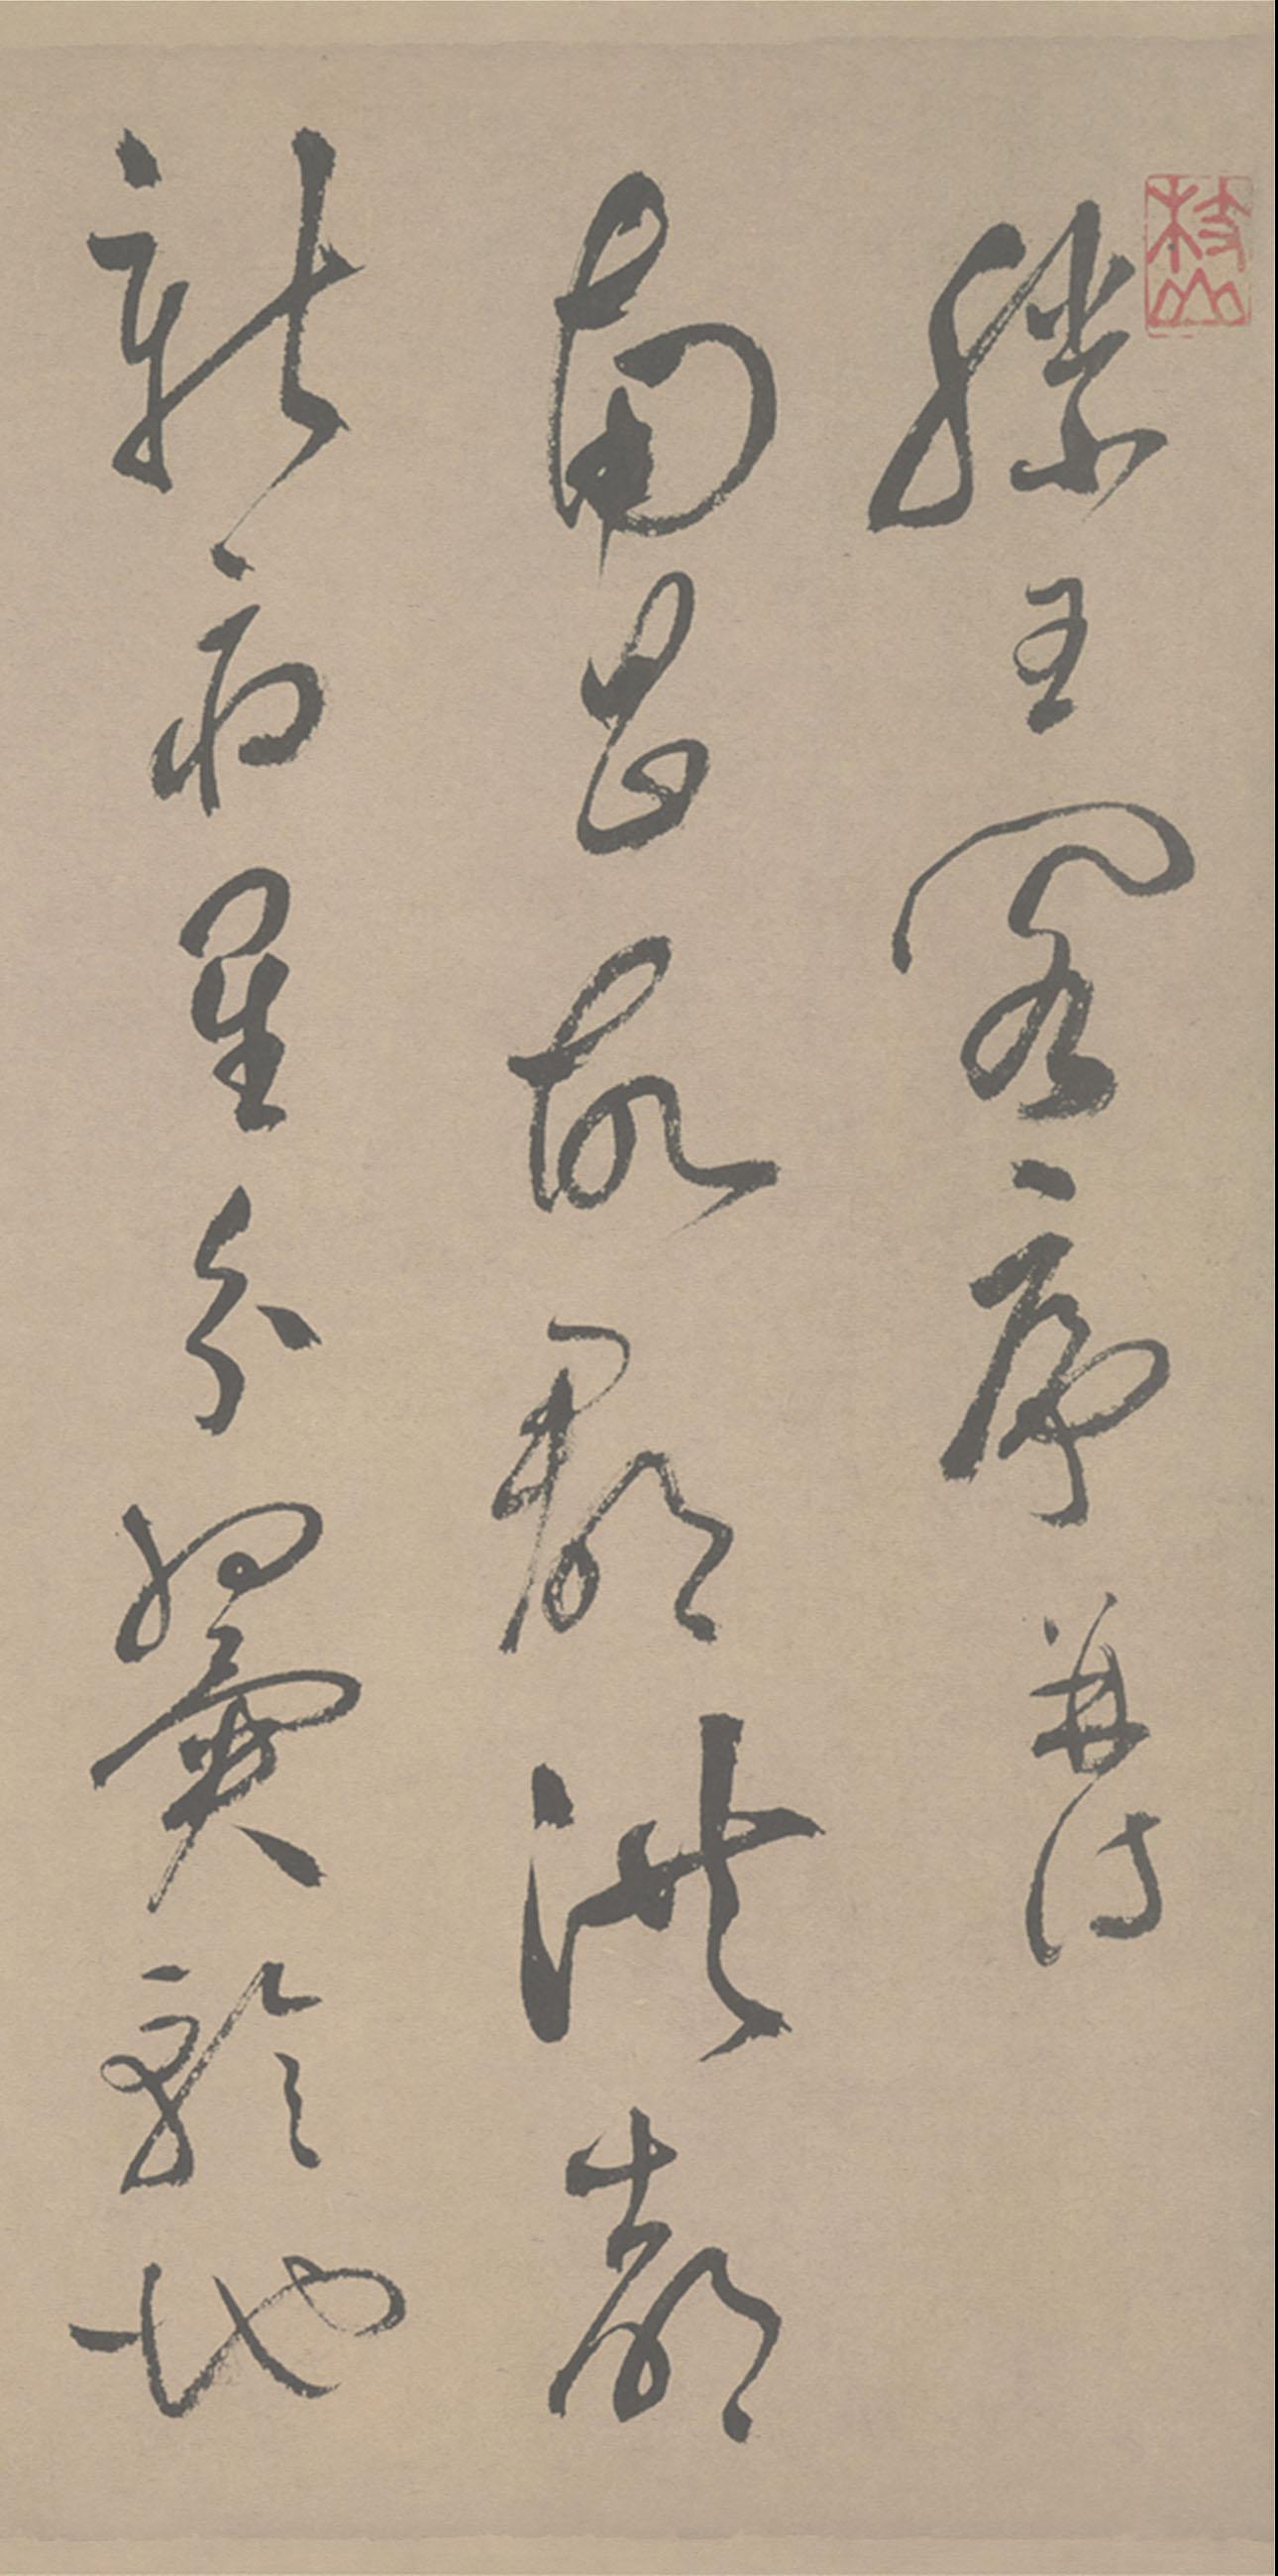 滕王閣序并詩
南昌故郡洪都
新府星分翼軫地
枝山